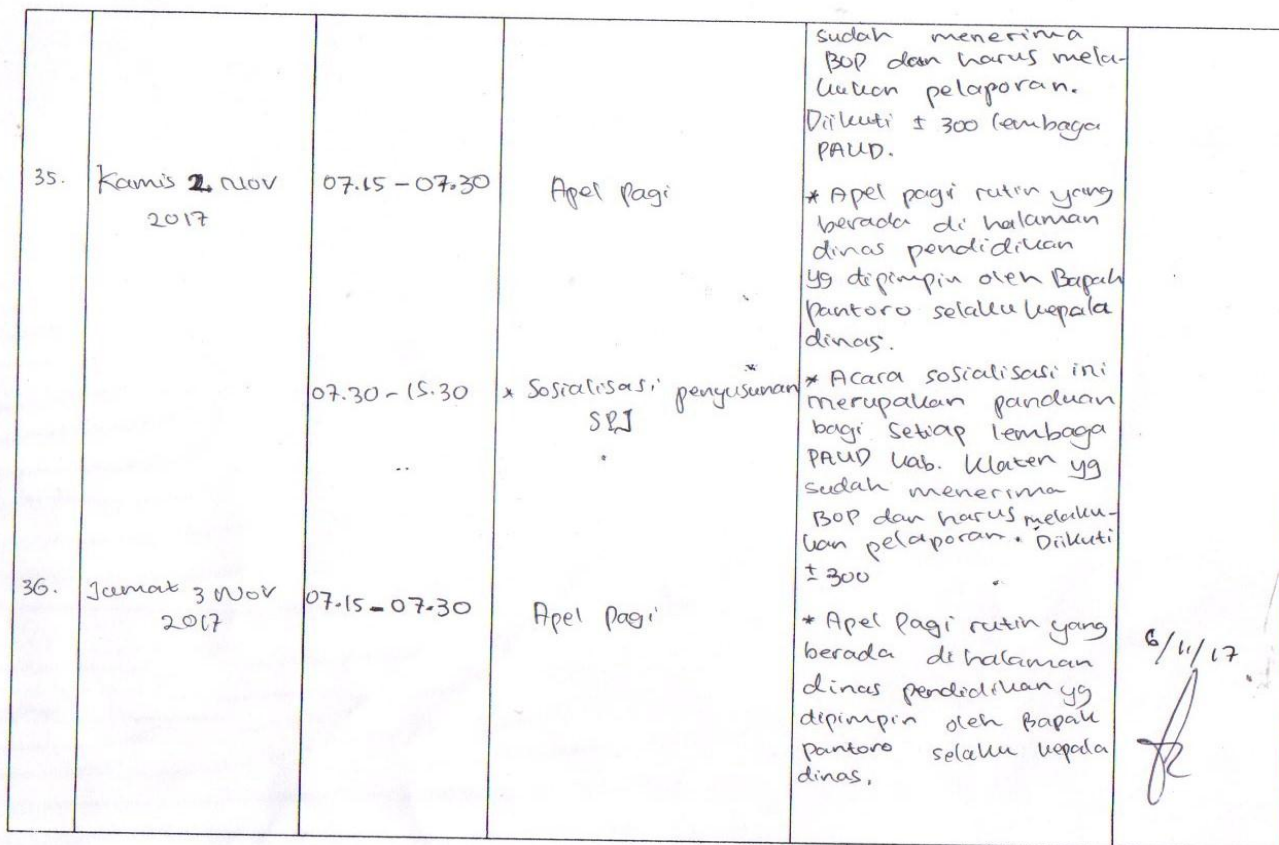 sudah menerima
BOP dan harus mela-
kukan pelaporan.
Diikuti ± 300 lembaga
PAUD.
35. Kamis 2 Nov 2017
07.15 - 07.30
Apel Pagi
* Apel pagi rutin yang
berada di halaman
dinas pendidikan
yg dipimpin oleh Bapak
pantoro selaku kepala
dinas.
07.30 - 15.30
* Sosialisasi penyusunan
SPJ
* Acara sosialisasi ini
merupakan panduan
bagi setiap lembaga
PAUD kab. Klaten yg
sudah menerima
BOP dan harus melaku-
kan pelaporan. Diikuti
± 300
36. Jumat 3 Nov
2017
07.15 - 07.30
Apel Pagi
* Apel Pagi rutin yang
berada di halaman
dinas pendidikan yg
dipimpin oleh Bapak
pantoro selaku kepala
dinas.
6/11/17